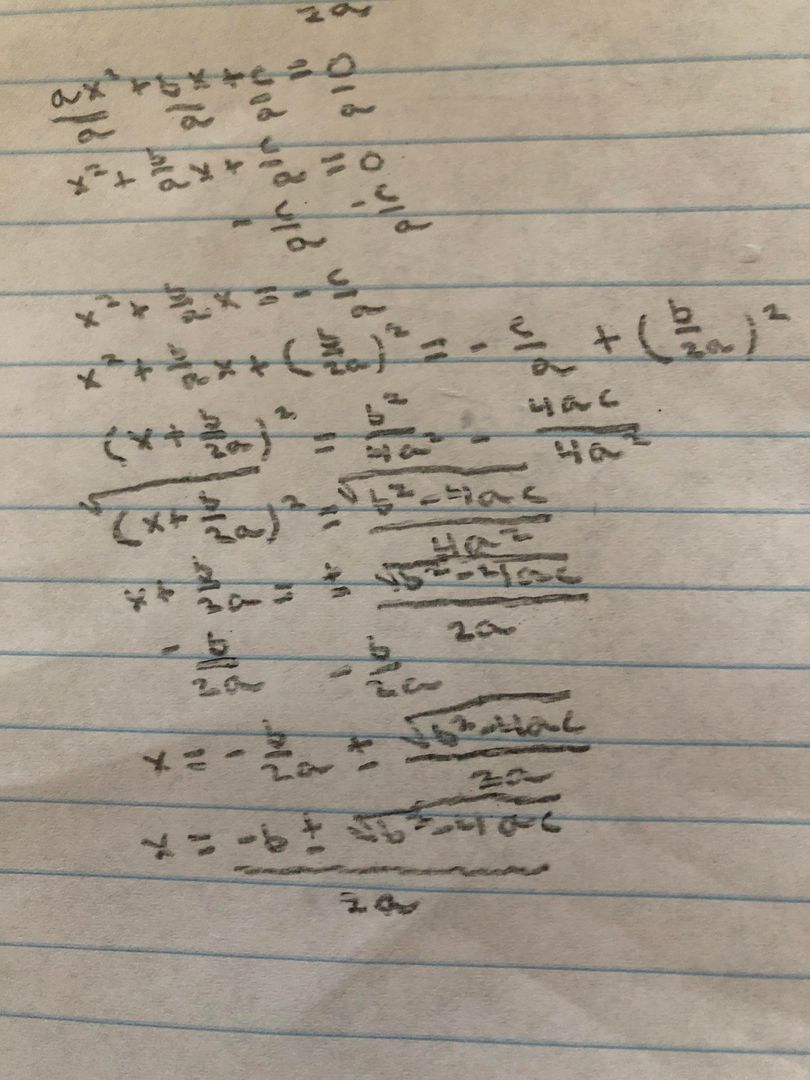 2a
ax²/a + bx/a + c/a = 0/a
x² + b/a x + c/a = 0
- c/a - c/a
x² + b/a x = - c/a
x² + b/a x + (b/2a)² = - c/a + (b/2a)²
(x + b/2a)² = b²/4a² - 4ac/4a²
√(x + b/2a)² = √b²-4ac/4a²
x + b/2a = ± √b²-4ac/2a
- b/2a - b/2a
x = - b/2a ± √b²-4ac/2a
x = -b ± √b²-4ac
2a